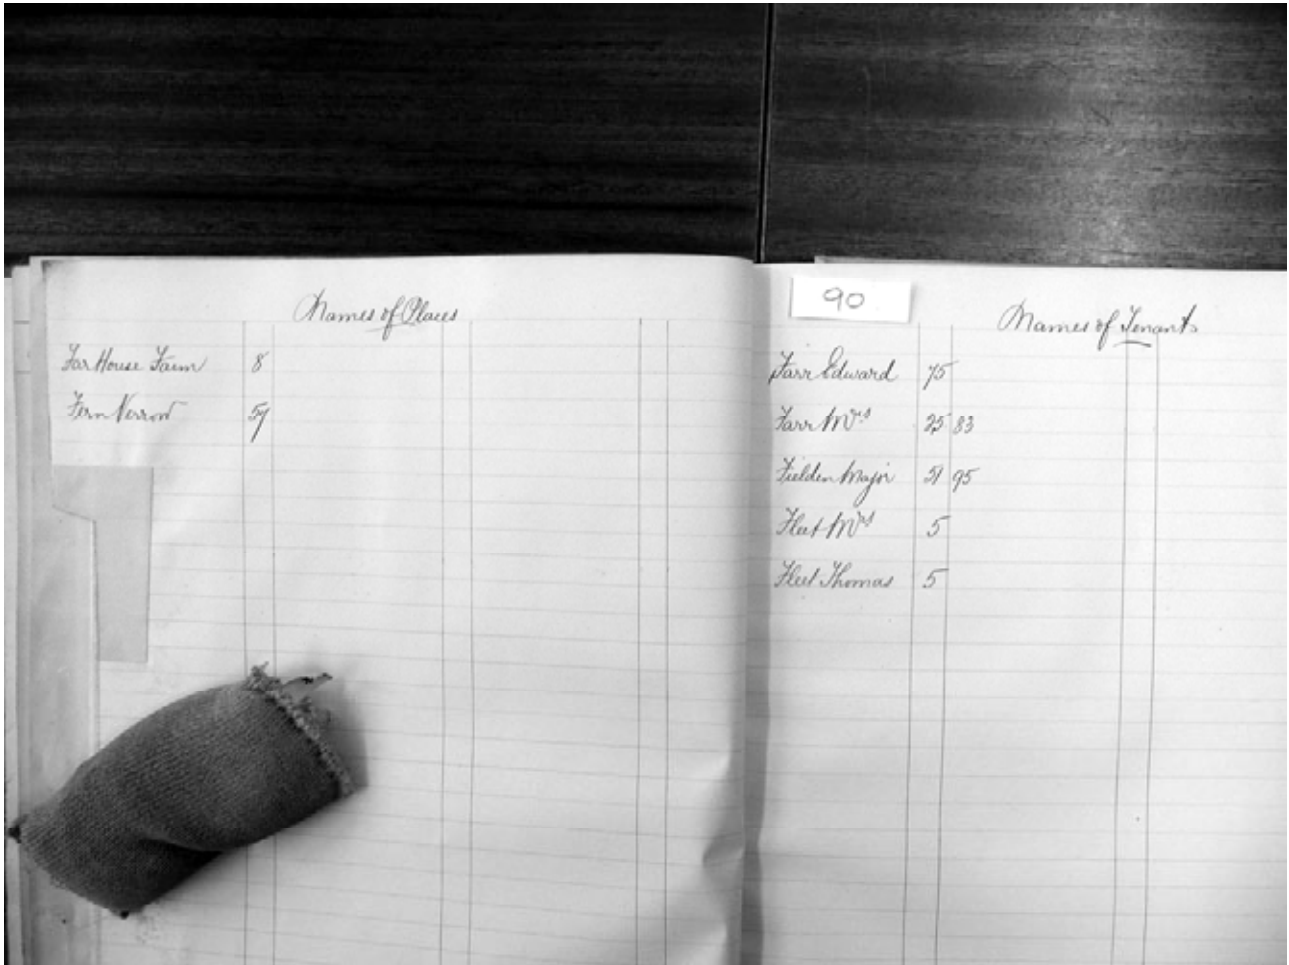 Names of Places
Far House Farm 8
Fern Verrow 57
90
Names of Tenants
Farr Edward 75
Farr Mrs 25 83
Fielden Major 51 95
Fleet Mrs 5
Fleet Thomas 5